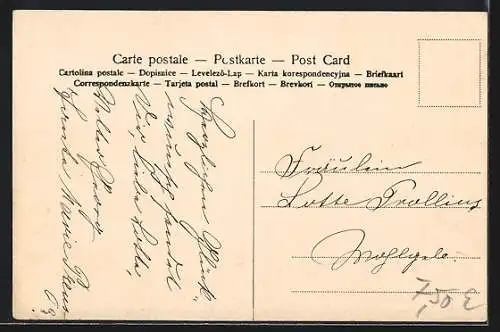 Carte postale — Postkarte — Post Card
Cartolina postale — Dopisnice — Levelező-Lap — Karta korespondencyjna — Briefkaart
Correspondenzkarte — Tarjeta postal — Brefkort — Brevkort — Открытое письмо
Herzlichen Glück-
wunsch sendet
Dir liebe Lotte,
Walter
Marie
Fräulein
Lotte Trolling
Wohlgeb.
7,50 E